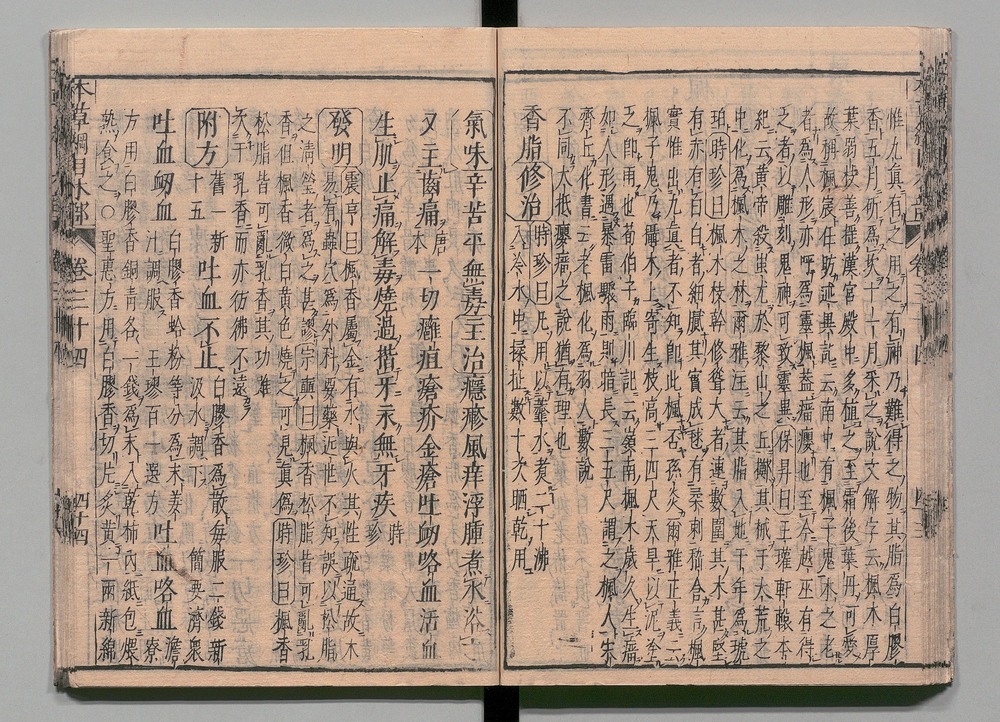 惟九真有之用之有神乃難得之物其脂爲白膠
香五月斫爲坎十一月采之說文解字云楓木厚
葉弱枝善搖漢宮殿中多植之至霜後葉丹可愛
故稱楓宸任昉述異記云南中有楓子鬼木之老
者爲人形亦呼爲靈楓蓋瘤癭也至今越巫有得
之者以雕刻鬼神可致靈異保昇曰王瓘軒轅本
紀云黃帝殺蚩尤於黎山之丘擲其械于大荒之
中化爲楓木之林爾雅注云其脂入地千年爲琥
珀時珍曰楓木枝幹修聳大者連數圍其木甚堅
有赤有白白者細膩其實成毬有柔刺嵇含言楓
實惟出九真者不知即此楓否孫炎爾雅正義云
楓子鬼乃攝木上寄生枝高三四尺天旱以泥塗
之即雨也荀伯子臨川記云嶺南楓木歲久生瘤
如人形遇暴雷驟雨則暗長三五尺謂之楓人宋
齊丘化書云老楓化爲羽人數說
不同大抵癭瘤之說猶有理也
香脂修治時珍曰凡用以虀水煮二十沸
入冷水中揉扯數十次晒乾用
氣味辛苦平無毒主治癮疹風痒浮腫煮水浴之
又主齒痛唐本一切癰疽瘡疥金瘡吐衄咯血活血
生肌止痛解毒燒過揩牙永無牙疾時珍
發明震亨曰楓香屬金有水與火其性疏通故木
易有蟲穴爲外科要藥近世不知誤以松脂
之清瑩者爲之甚謬宗奭曰楓香松脂皆可亂乳
香但楓香微白黃色燒之可見真僞時珍曰楓香
松脂皆可亂乳香其功雖
次于乳香而亦彷彿不遠
附方舊一新十五吐血不止白膠香爲散每服二錢新
汲水調下簡要濟衆
吐血衄血白膠香蛤粉等分爲末姜
汁調服王璆百一選方吐血咯血澹寮
方用白膠香銅青各一錢爲末入乾柿內紙包煨
熟食之○聖惠方用白膠香切片炙黃一兩新綿
本草綱目木部
卷三十四
四十四